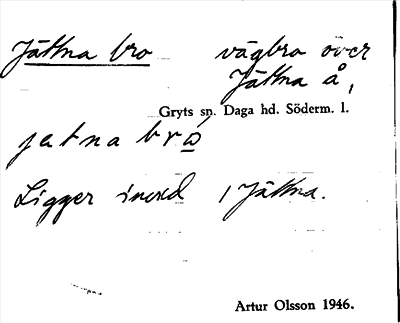 Jättna bro vägbro över
Jättna å,
Gryts sn. Daga hd. Söderm. l.
jetna bro
Ligger invid Jättna.
Artur Olsson 1946.